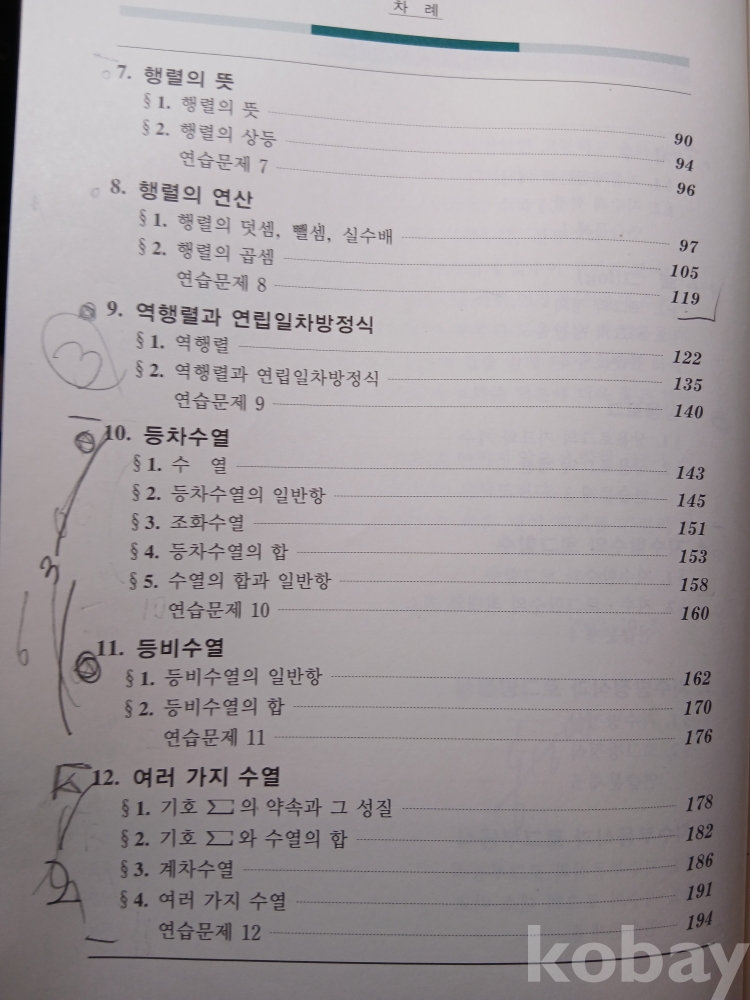 차 례
7. 행렬의 뜻
§ 1. 행렬의 뜻 90
§ 2. 행렬의 상등 94
연습문제 7 96
8. 행렬의 연산
§ 1. 행렬의 덧셈, 뺄셈, 실수배 97
§ 2. 행렬의 곱셈 105
연습문제 8 119
9. 역행렬과 연립일차방정식
§ 1. 역행렬 122
§ 2. 역행렬과 연립일차방정식 135
연습문제 9 140
3
10. 등차수열
§ 1. 수 열 143
§ 2. 등차수열의 일반항 145
§ 3. 조화수열 151
§ 4. 등차수열의 합 153
§ 5. 수열의 합과 일반항 158
연습문제 10 160
3
6
11. 등비수열
§ 1. 등비수열의 일반항 162
§ 2. 등비수열의 합 170
연습문제 11 176
12. 여러 가지 수열
§ 1. 기호 ∑의 약속과 그 성질 178
§ 2. 기호 ∑와 수열의 합 182
§ 3. 계차수열 186
§ 4. 여러 가지 수열 191
연습문제 12 194
kobay